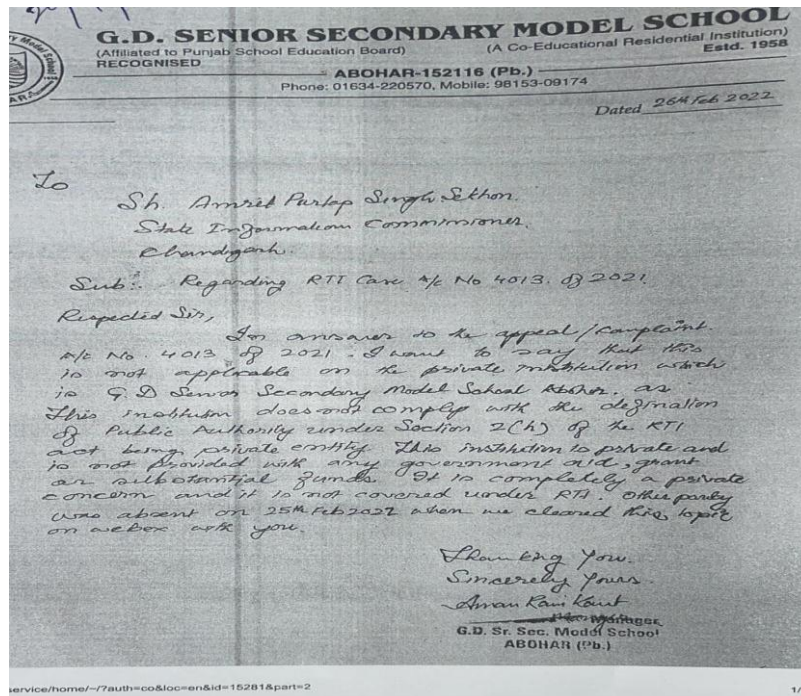 G.D. SENIOR SECONDARY MODEL SCHOOL
(Affiliated to Punjab School Education Board) (A Co-Educational Residential Institution)
RECOGNISED Estd. 1958
ABOHAR-152116 (Pb.)
Phone: 01634-220570, Mobile: 98153-09174
Dated 26th Feb 2022
To
Sh. Amrit Partap Singh Sekhon.
State Information Commissioner.
Chandigarh.
Sub:- Regarding RTI Case A/c No 4013. of 2021.
Respected Sir,
In answer to the appeal/complaint.
A/c No. 4013 of 2021. I want to say that this
is not applicable on the private institution which
is G.D Senior Secondary Model School Abohar. as
This institution does not comply with the defination
of Public Authority under Section 2(h) of the RTI
act being private entity. This institution is private and
is not provided with any government aid, grant
or substantial funds. It is completely a private
concern and it is not covered under RTI. Other party
was absent on 25th Feb 2022 when we cleared this topic
on webex with you.
Thanking You.
Sincerely Yours.
Aman Ravi Kant
Manager
G.D. Sr. Sec. Model School
ABOHAR (Pb.)
service/home/~/?auth=co&loc=en&id=15281&part=2
1/